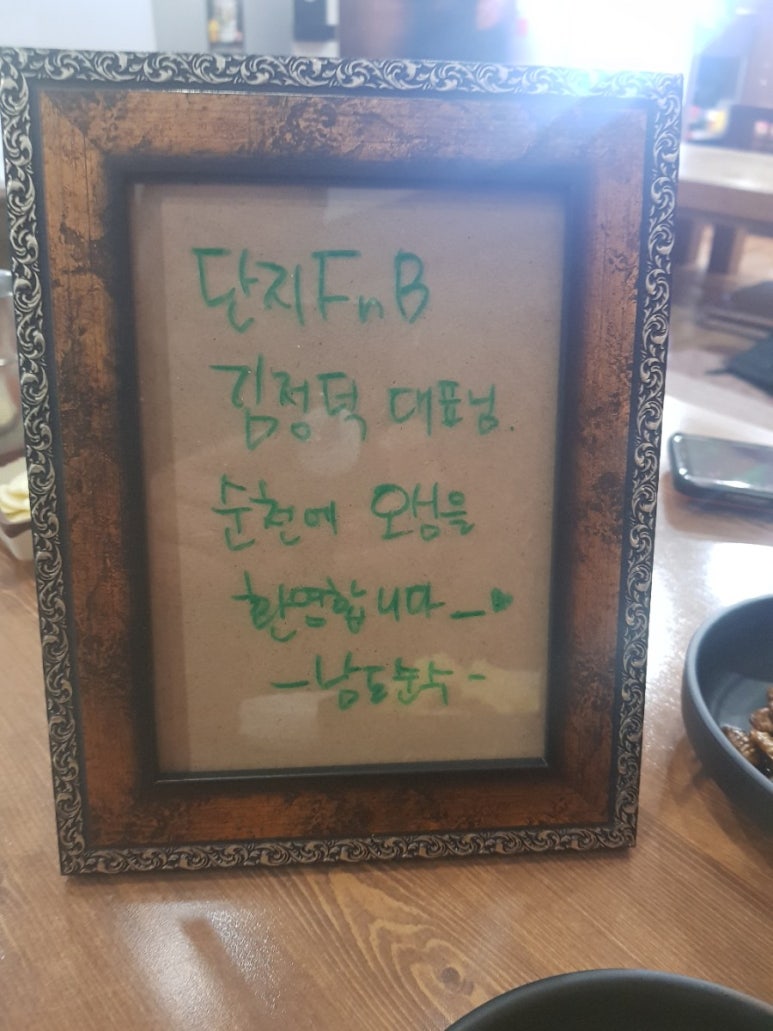 단지FnB
김정덕 대표님.
순천에 오심을
환영합니다_♥
-남도순수-